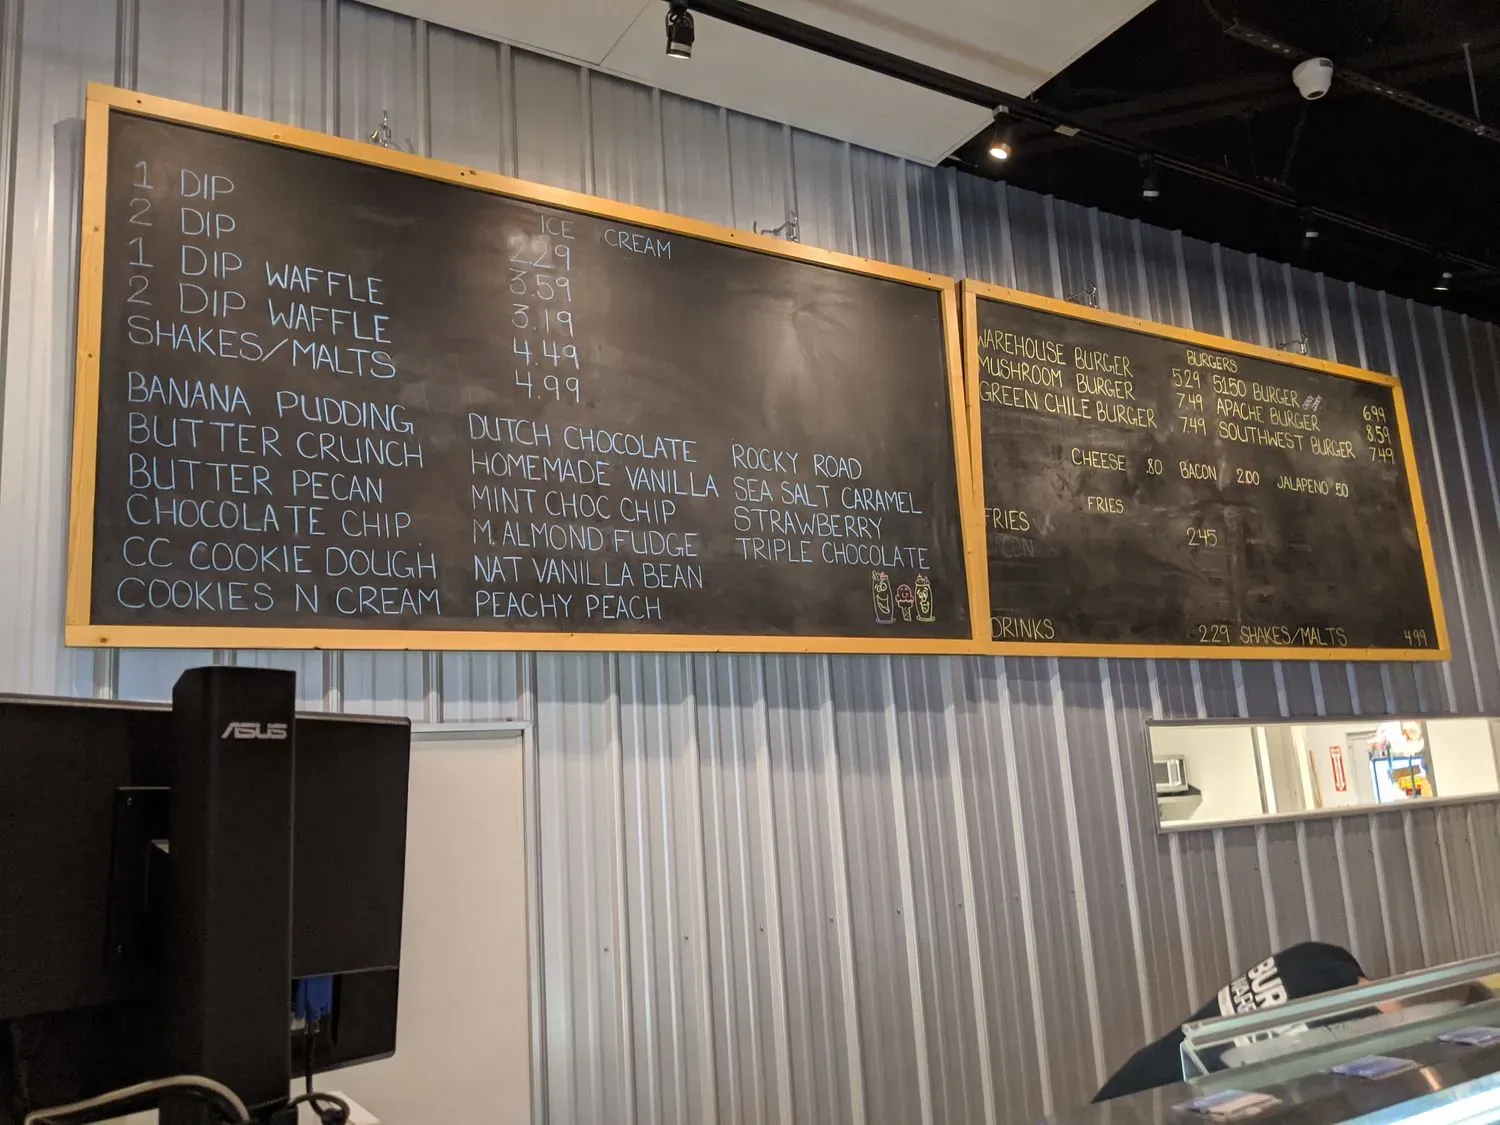 ICE CREAM
1 DIP 2.29
2 DIP 3.59
1 DIP WAFFLE 3.19
2 DIP WAFFLE 4.49
SHAKES/MALTS 4.99
BANANA PUDDING
BUTTER CRUNCH
BUTTER PECAN
CHOCOLATE CHIP
CC COOKIE DOUGH
COOKIES N CREAM
DUTCH CHOCOLATE
HOMEMADE VANILLA
MINT CHOC CHIP
M. ALMOND FUDGE
NAT VANILLA BEAN
PEACHY PEACH
ROCKY ROAD
SEA SALT CARAMEL
STRAWBERRY
TRIPLE CHOCOLATE
BURGERS
WAREHOUSE BURGER 5.29 5150 BURGER 6.99
MUSHROOM BURGER 7.49 APACHE BURGER 8.59
GREEN CHILE BURGER 7.49 SOUTHWEST BURGER 7.49
CHEESE .80 BACON 2.00 JALAPENO 50
FRIES
FRIES 2.45
BACON
DRINKS 2.29 SHAKES/MALTS 4.99
ASUS
BUR